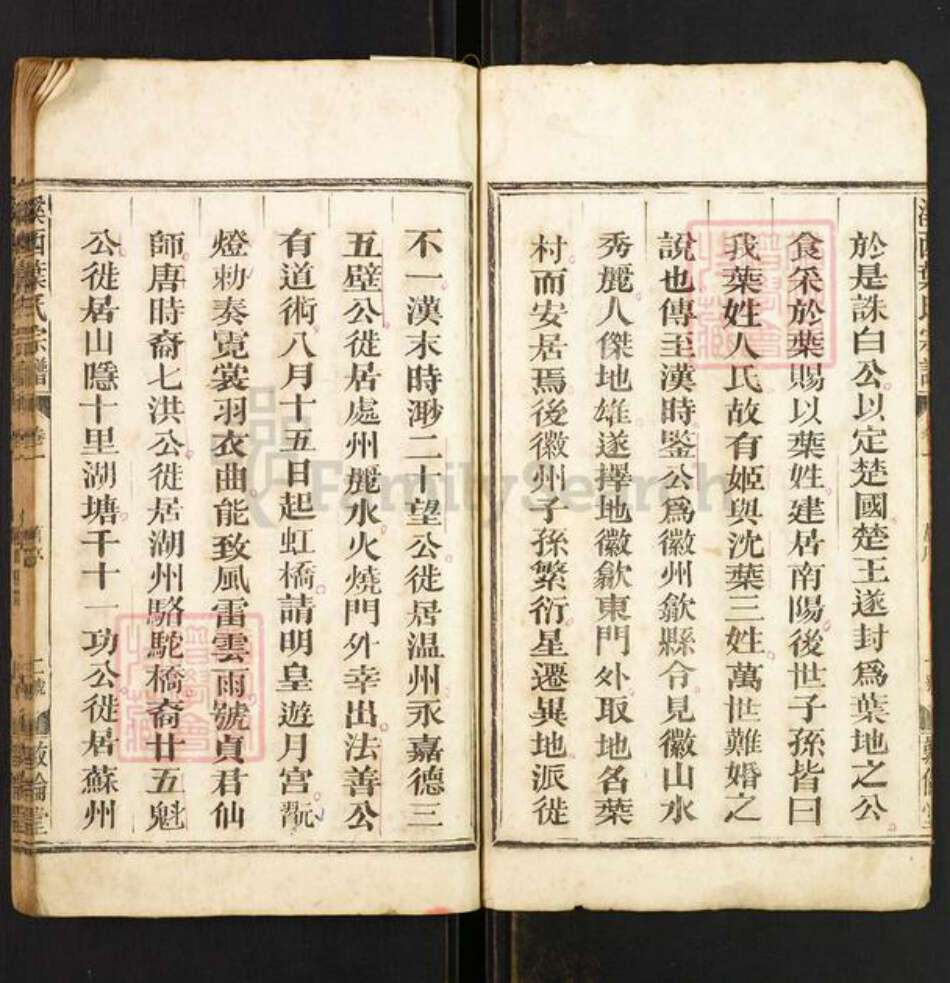 於是誅白公以定楚國楚王遂封爲葉地之公
食采於葉賜以葉姓建居南陽後世子孫皆曰
我葉姓人氏故有姬與沈葉三姓萬世難婚之
說也傳至漢時鑒公爲徽州歙縣令見徽山水
秀麗人傑地雄遂擇地徽歙東門外取地名葉
村而安居焉後徽州子孫繁衍星遷異地派徙
不一漢末時渺二十望公徙居温州永嘉德三
五壁公徙居處州麗水火燒門外幸出法善公
有道術八月十五日起虹橋請明皇遊月宮翫
燈勅奏霓裳羽衣曲能致風雷雲雨號貞君仙
師唐時裔七洪公徙居湖州駱駝橋裔廿五魁
公徙居山隱十里湖塘千十一功公徙居蘇州
溪西葉氏宗譜 卷一 二號 敦倫堂
FamilySearch